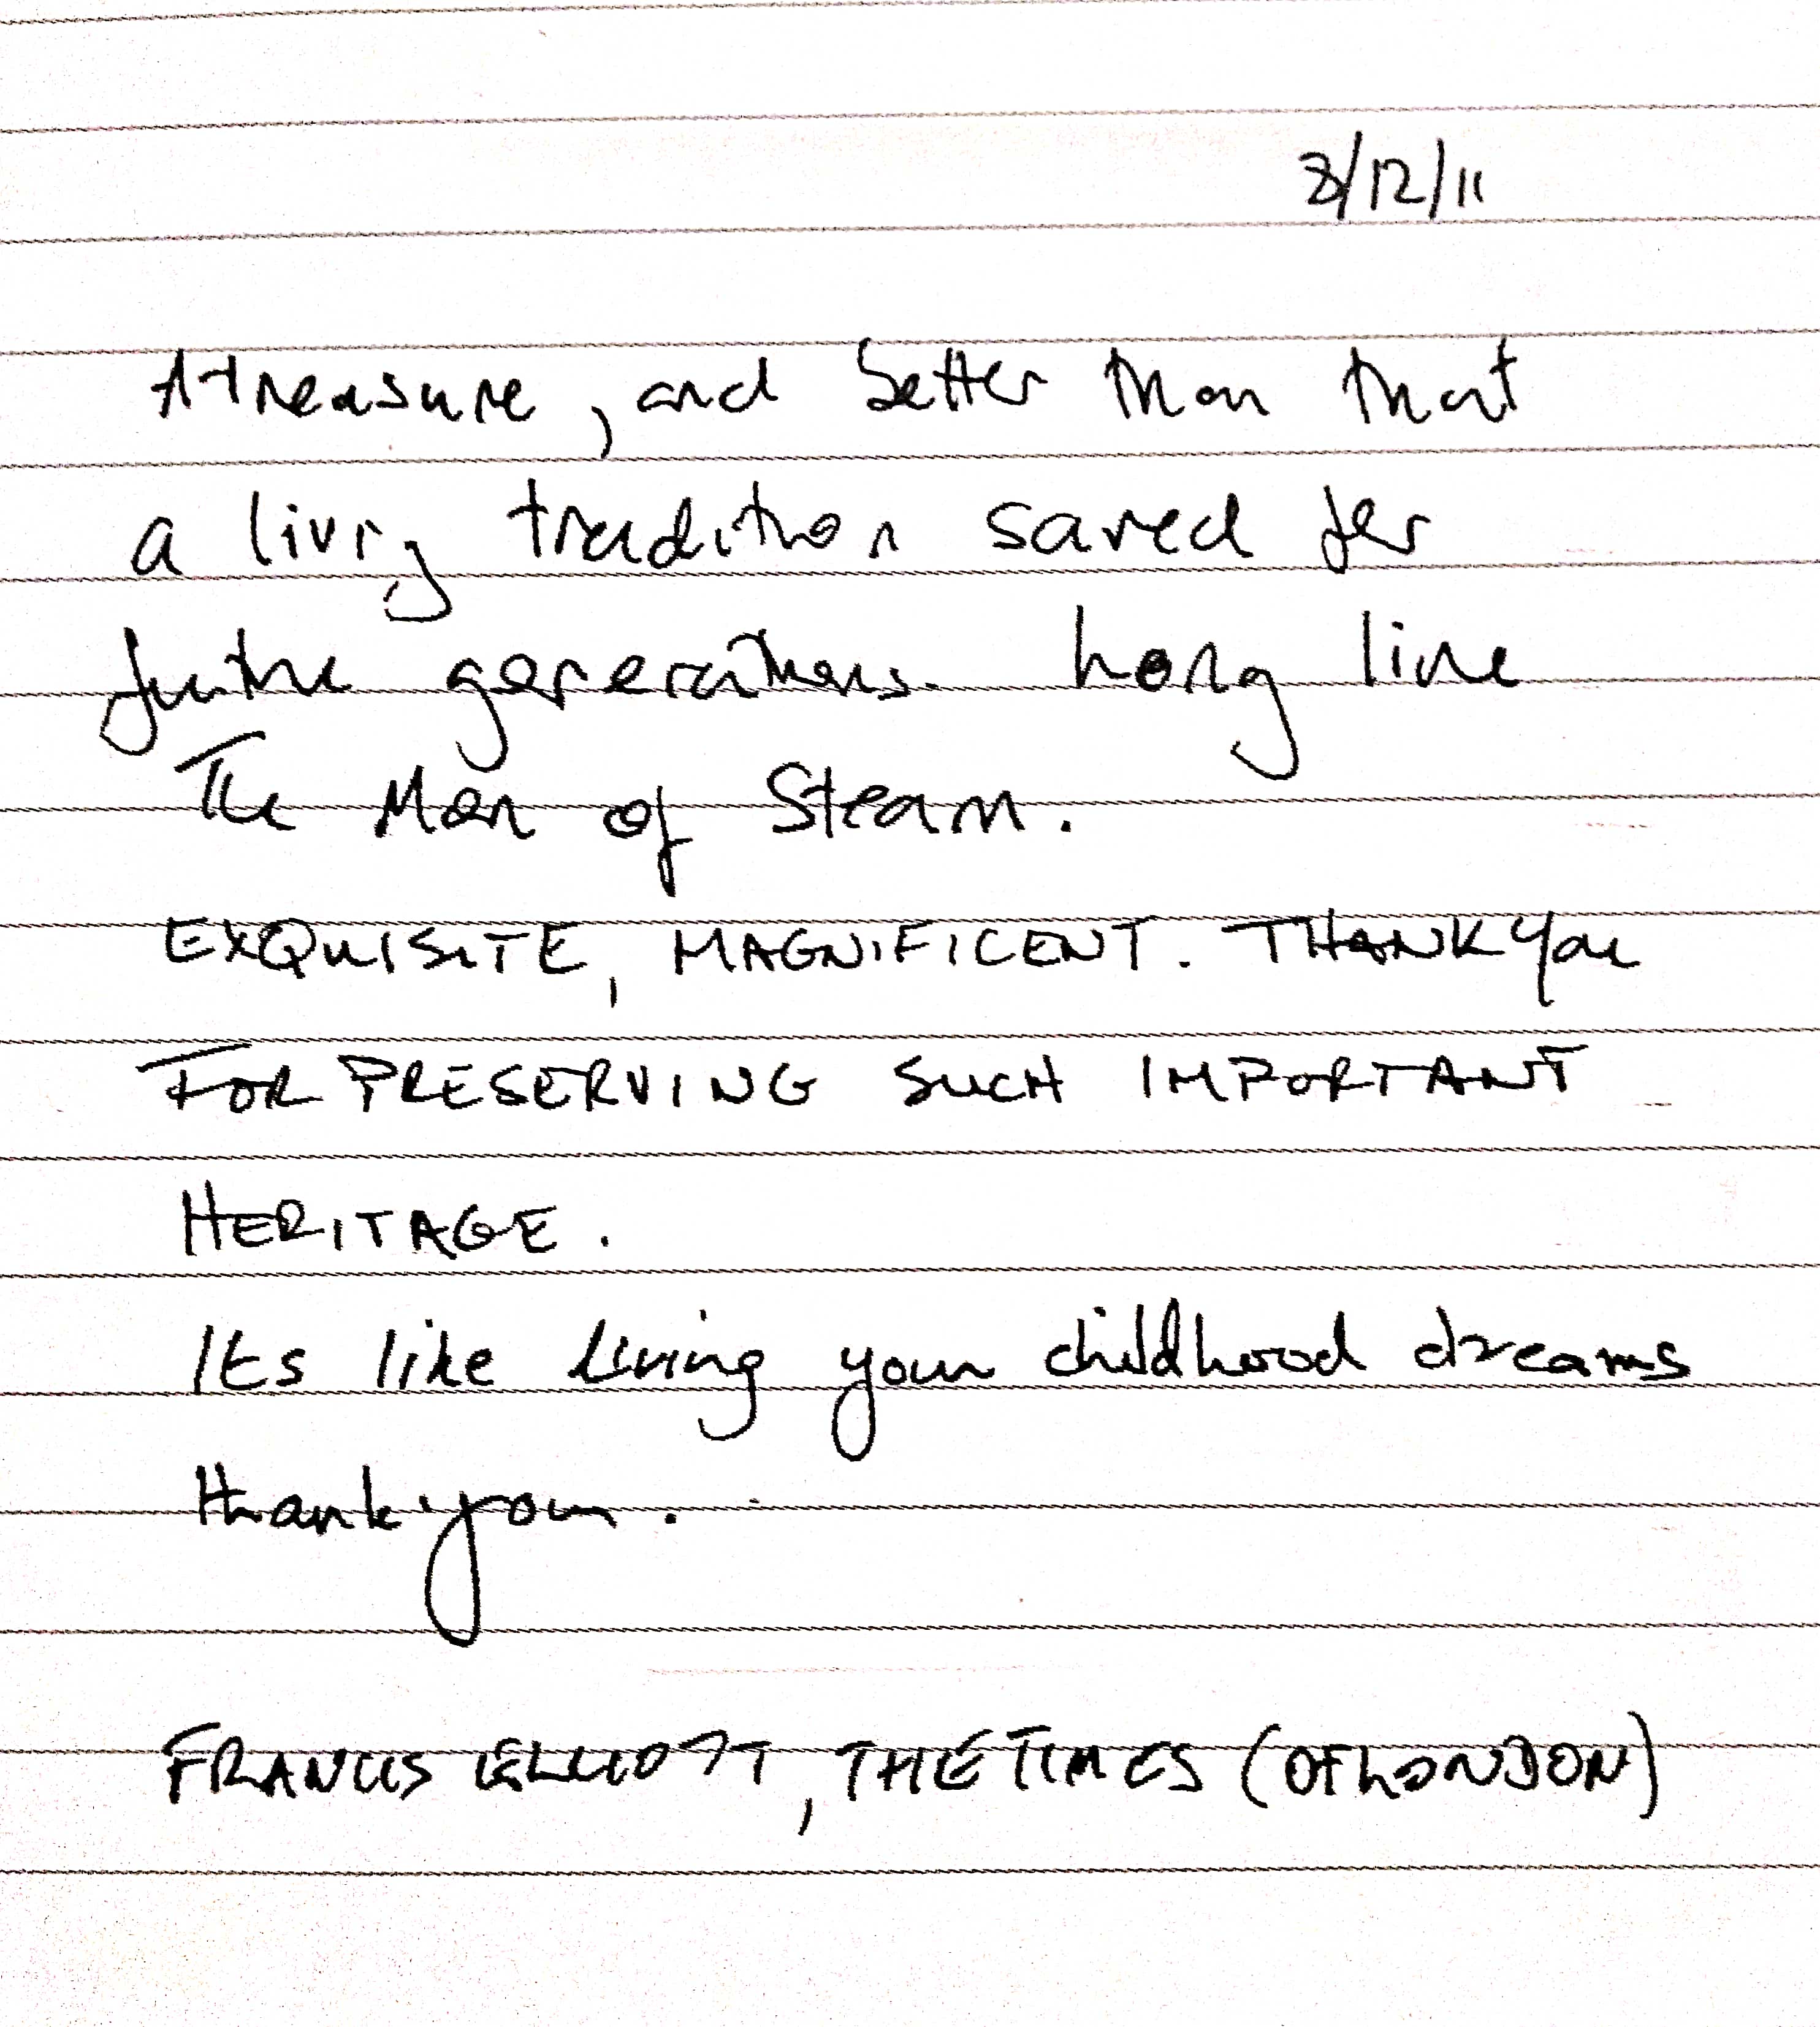 3/12/11
A treasure, and better than that
a living tradition saved for
future generations. Long live
The Men of Steam.
EXQUISITE, MAGNIFICENT. THANK you
FOR PRESERVING SUCH IMPORTANT
HERITAGE.
Its like living your childhood dreams
thank you.
FRANCIS ELLIOTT, THE TIMES (OF LONDON)